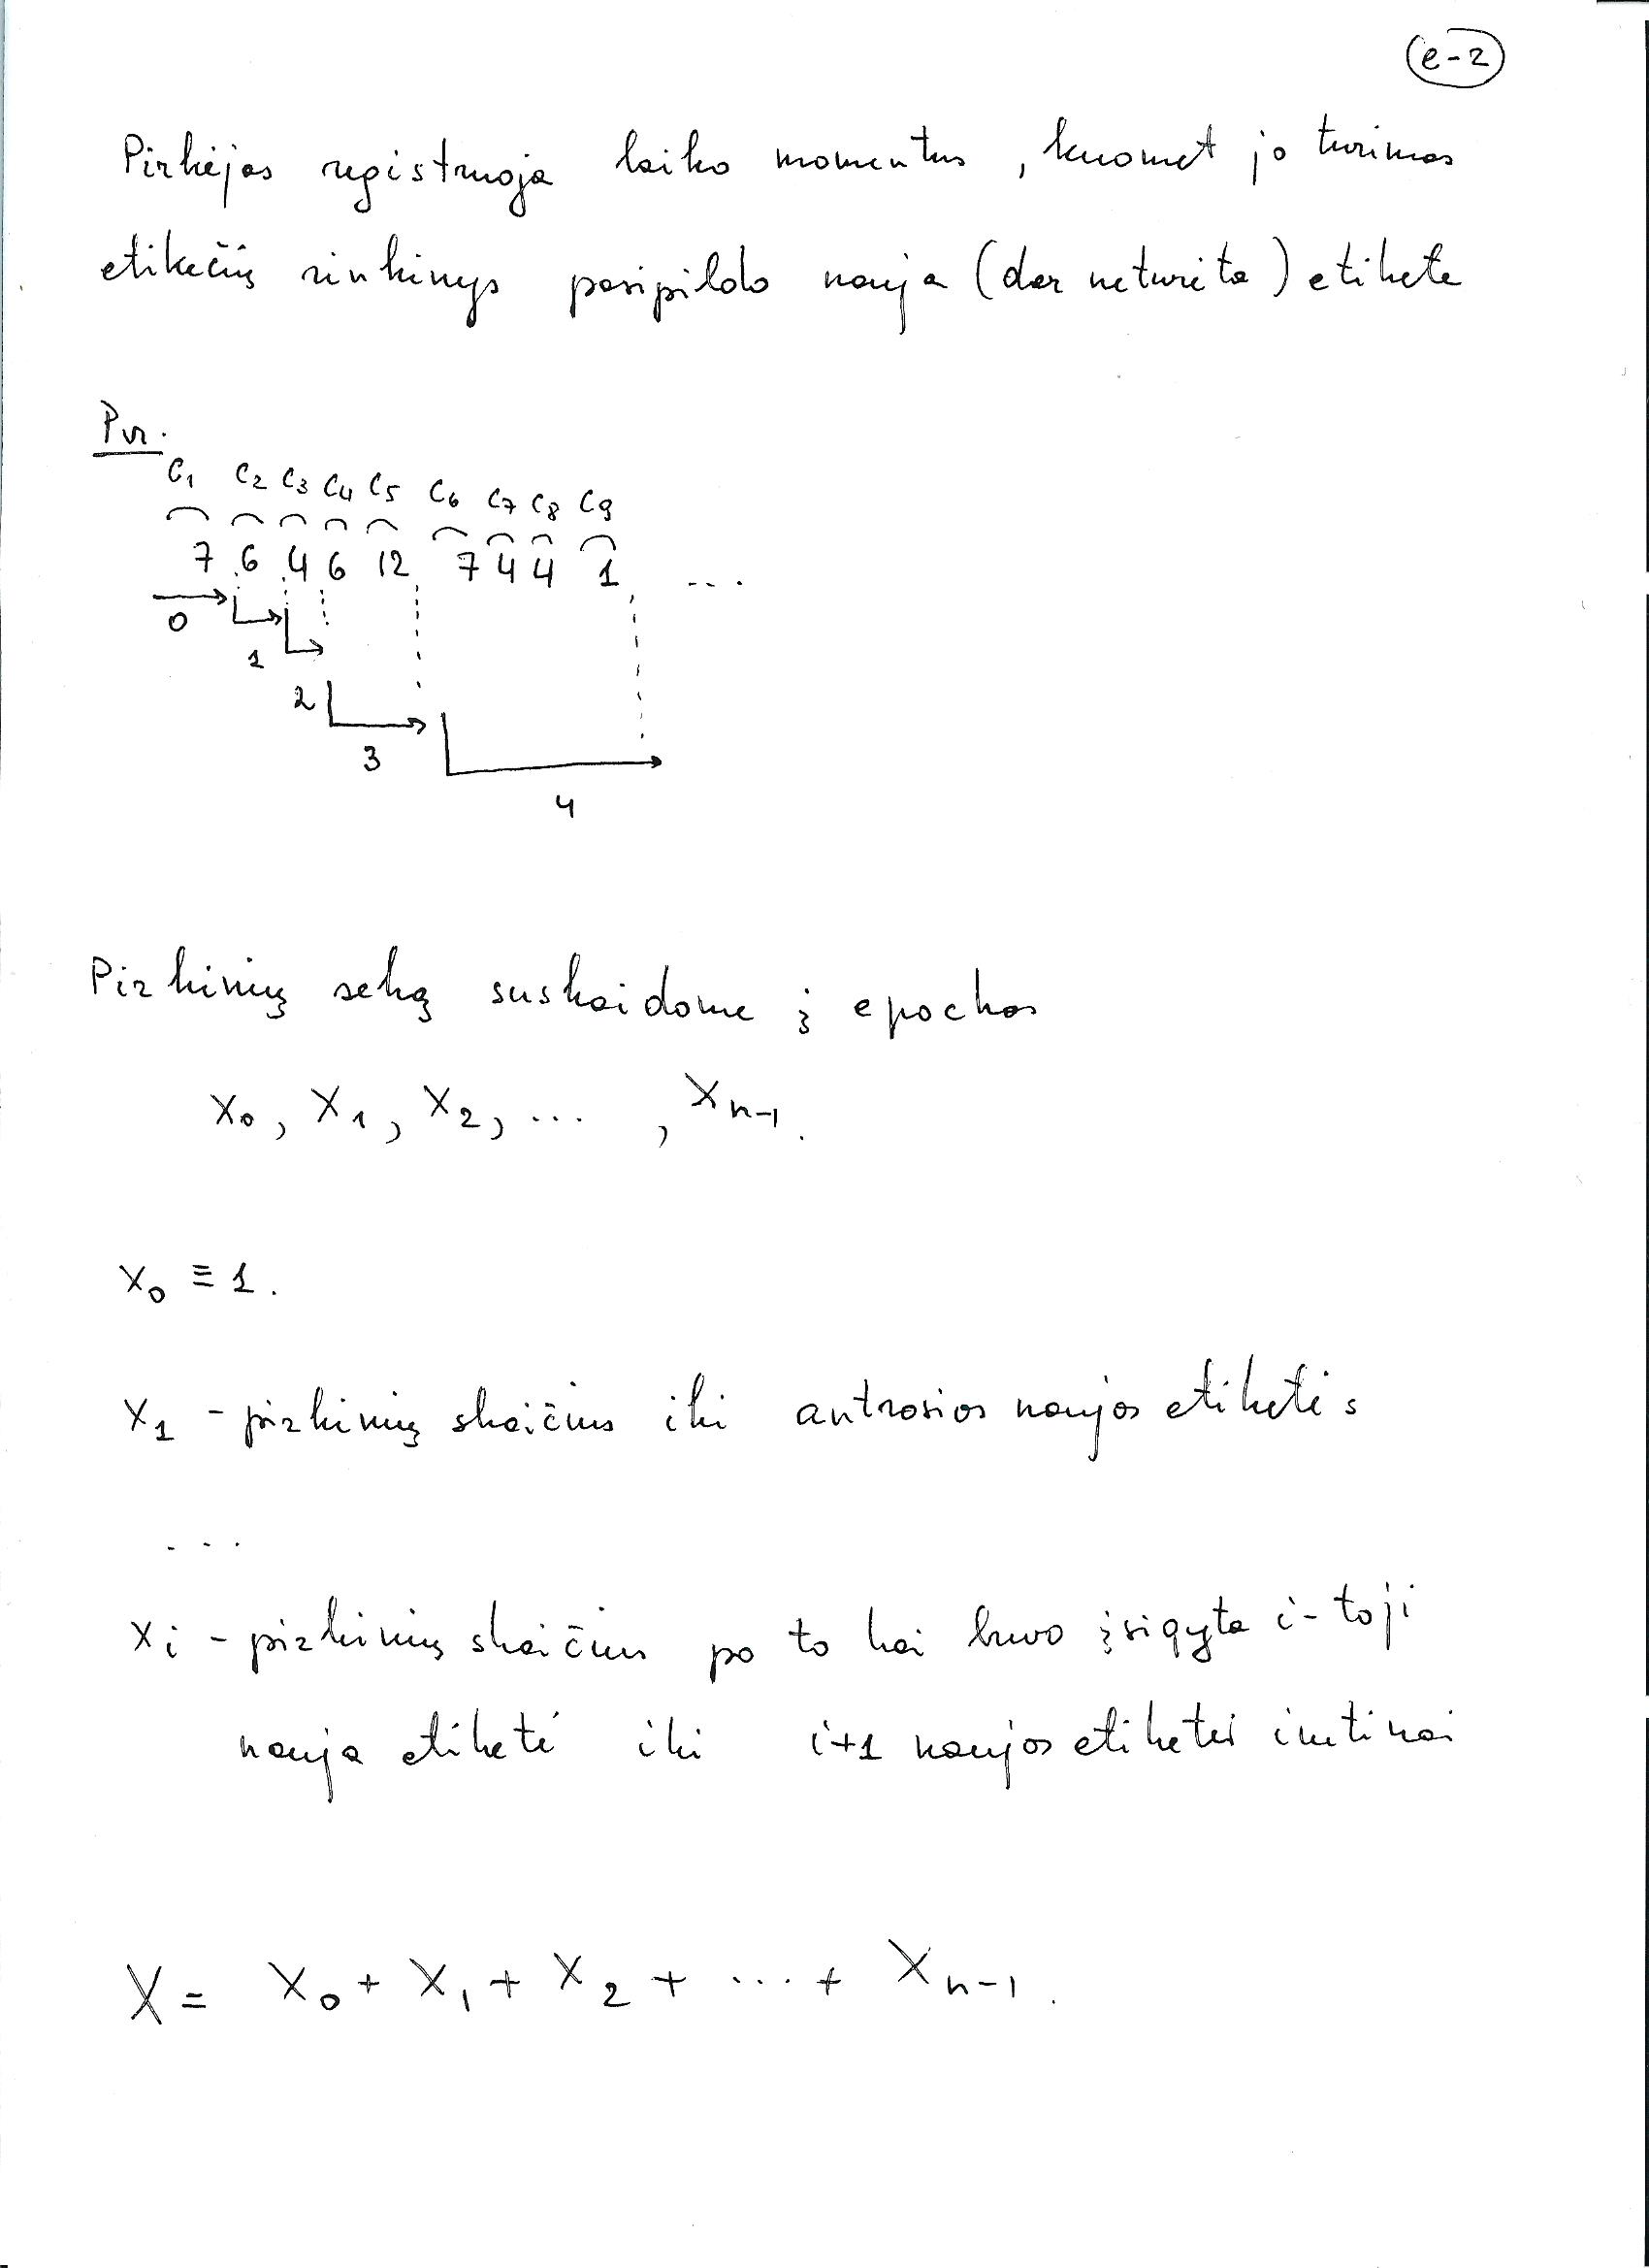 e-2
Pirkėjas registruoja laiko momentus, kuomet jo turimas
etikečių rinkinys pasipildo nauja (dar neturėta) etikete
Pvz.
C1 C2 C3 C4 C5 C6 C7 C8 C9
7 6 4 6 12 7 4 4 1 ...
0
1
2
3
4
Pirkinių seką suskaidome į epochas
X0, X1, X2, ..., Xn-1.
X0 ≡ 1.
X1 - pirkinių skaičius iki antrosios naujos etiketės
...
Xi - pirkinių skaičius po to kai buvo įsigyta i-toji
nauja etiketė iki i+1 naujos etiketės imtinai
X = X0 + X1 + X2 + ... + Xn-1.